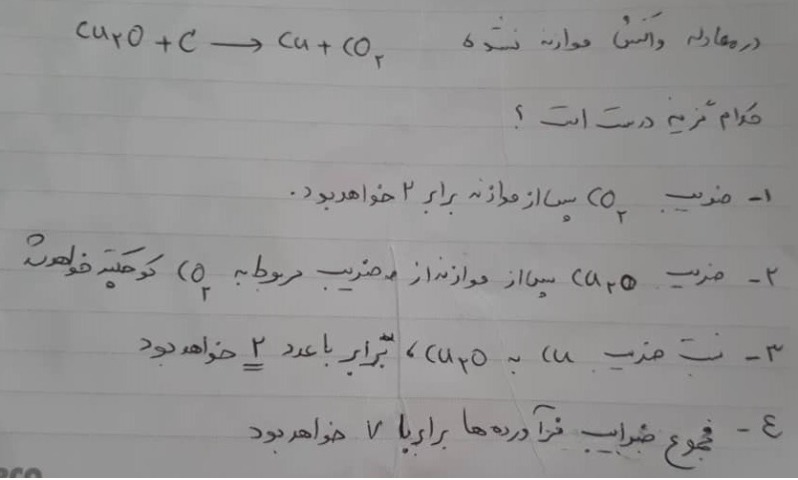 در معادله واکنش موازنه نشده Cu₂O + C → Cu + CO₂
کدام گزینه درست است ؟
۱- ضریب CO₂ پس از موازنه برابر ۲ خواهد بود.
۲- ضریب Cu₂O پس از موازنه از ضریب مربوط به CO₂ کوچکتر خواهد شد
۳- نسبت ضریب Cu به Cu₂O ، برابر با عدد ۲ خواهد بود
٤- مجموع ضرایب فرآورده ها برابر با ۷ خواهد بود